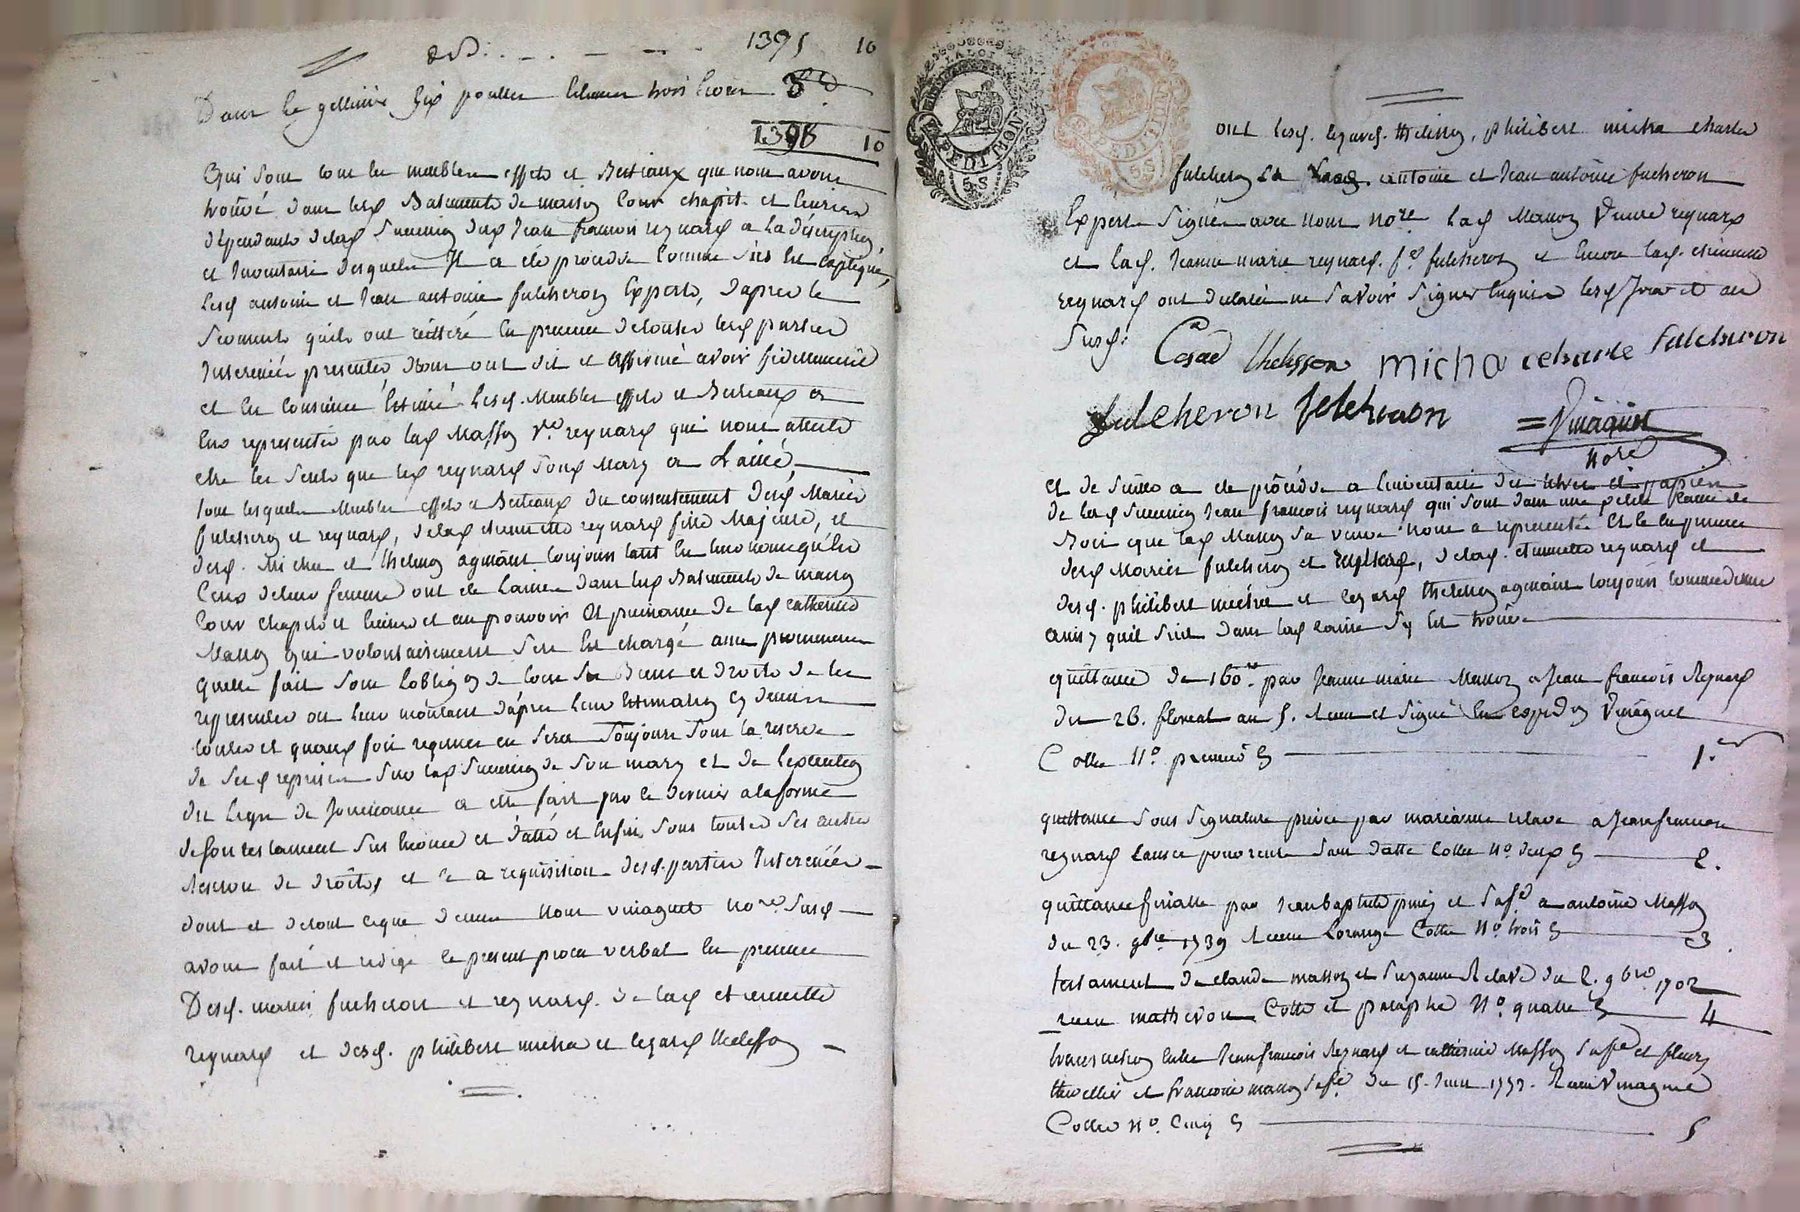 1395 10
Dans la gelinière six poulles Estimées trois livres 3 "
1398 10
Qui sont tous les meubles effets et Bestiaux que nous avons
trouvé dans lesd Batiments de maison Cour chapit et Ecuries
dépendants delad Succession dud Jean françois reynard a La déscription
et Inventaire desquels Il a été procédé Comme S'est Est Expliqué,
Lesd antoine et Jean antoine fulcheron Experts, d'apres le
Serments quils ont reitteré En présence detoutes lesd parties
présentés Nous ont dit et affirmé avoir fidellement
et En Conscience Estimé Lesd. Meubles effets et Bestiaux a
Eux representés par lad Masson Ve. reynard qui nous atteste
etre les seuls que led reynard Son Mary a Laissé
tous lesquels Meubles effets et Bestiaux du consentement desd Mariés
fulcheron et reynard, delad etiennette reynard fille Majeure, et
desd. micha et thelisson agissant toujours tant En leur nom qu'En
Ceux deleur femme ont été Laissés dans lesd Batiments de maison
Cour chapit et Ecuries et au pouvoir Et puissance de lad catherine
Masson qui volontairement s'en Est chargé avec promesse
quelle fait sous Lobligon de tous Ses Biens et droits de les
representer ou leur montant d'apres leur Estimation Cy dessus
toutes et quantes fois requise en sera toujours Sous la reserve
de Sesd reprises Sur lad Succession de Son mary et de Lexecution
du Legs de Jouissance a elle fait par le dernier alaforme
deson testament Sus Enoncé et datté et Enfin Sous toutes Ses autres
reserves de droits, et a requisition desd. parties
dont et detout ceque dessus Nous vinaguet Nore. Susd
avons fait et redigé le présent procès verbal En présence
Desd. mariés fulcheron et reynard. de lad etiennette
reynard et desd. philibert micha et Cezard thelisson
ont lesd. Cezard thelisson, philibert micha charle
fulcheron antoine et Jean antoine fulcheron
Experts Signés avec nous Nore Lad Masson Veuve reynard
et lad. Jeanne marie reynard. fe. fulcheron et Encore lad. etiennette
reynard ont déclaré ne Savoir Signer Enquises lesd Jour et an
Susd.
Cesar thelisson micha charle fulcheron
fulcheron fulcheron
Vinaguet
Nore
et de suitte a été procédé a Linventaire des titres et papiers
de lad Succession Jean françois reynard qui Sont dans une petite Caisse de
Bois que lad Masson Sa veuve nous a representé Et le En présence
desd Mariés fulcheron et reynard, delad. etiennette reynard et
desd. philibert micha et Cezard thelisson agissant toujours comme dessus
quil Suit dans lad Caisse S'y Est trouvé
quittance de 160# par Jeanne marie Masson a Jean françois Reynard
du 26. floréal an 5. recue et Signé En Expedon Vinaguet
Cottée No. premier 1.er
quittance Sous Signature privée par marianne relave a Jean francois
reynard Sans datte Cottée No. deux 2.
quittance finalle par Jean baptiste piney et Safe a antoine Masson
du 23. 9bre 1739 recue Lorange Cottée No. trois 3
testament de claude masson et Suzanne Relave du 2. 9bre 1702
recu mathevon Cotté et paraphé No. quatre 4
transaction Entre Jean françois Reynard et catherine Masson Safe et fleury
thevellier et françoise masson Safe. du 15. Juin 1793. Recue Vinaguet
Cottée No. Cinq 5